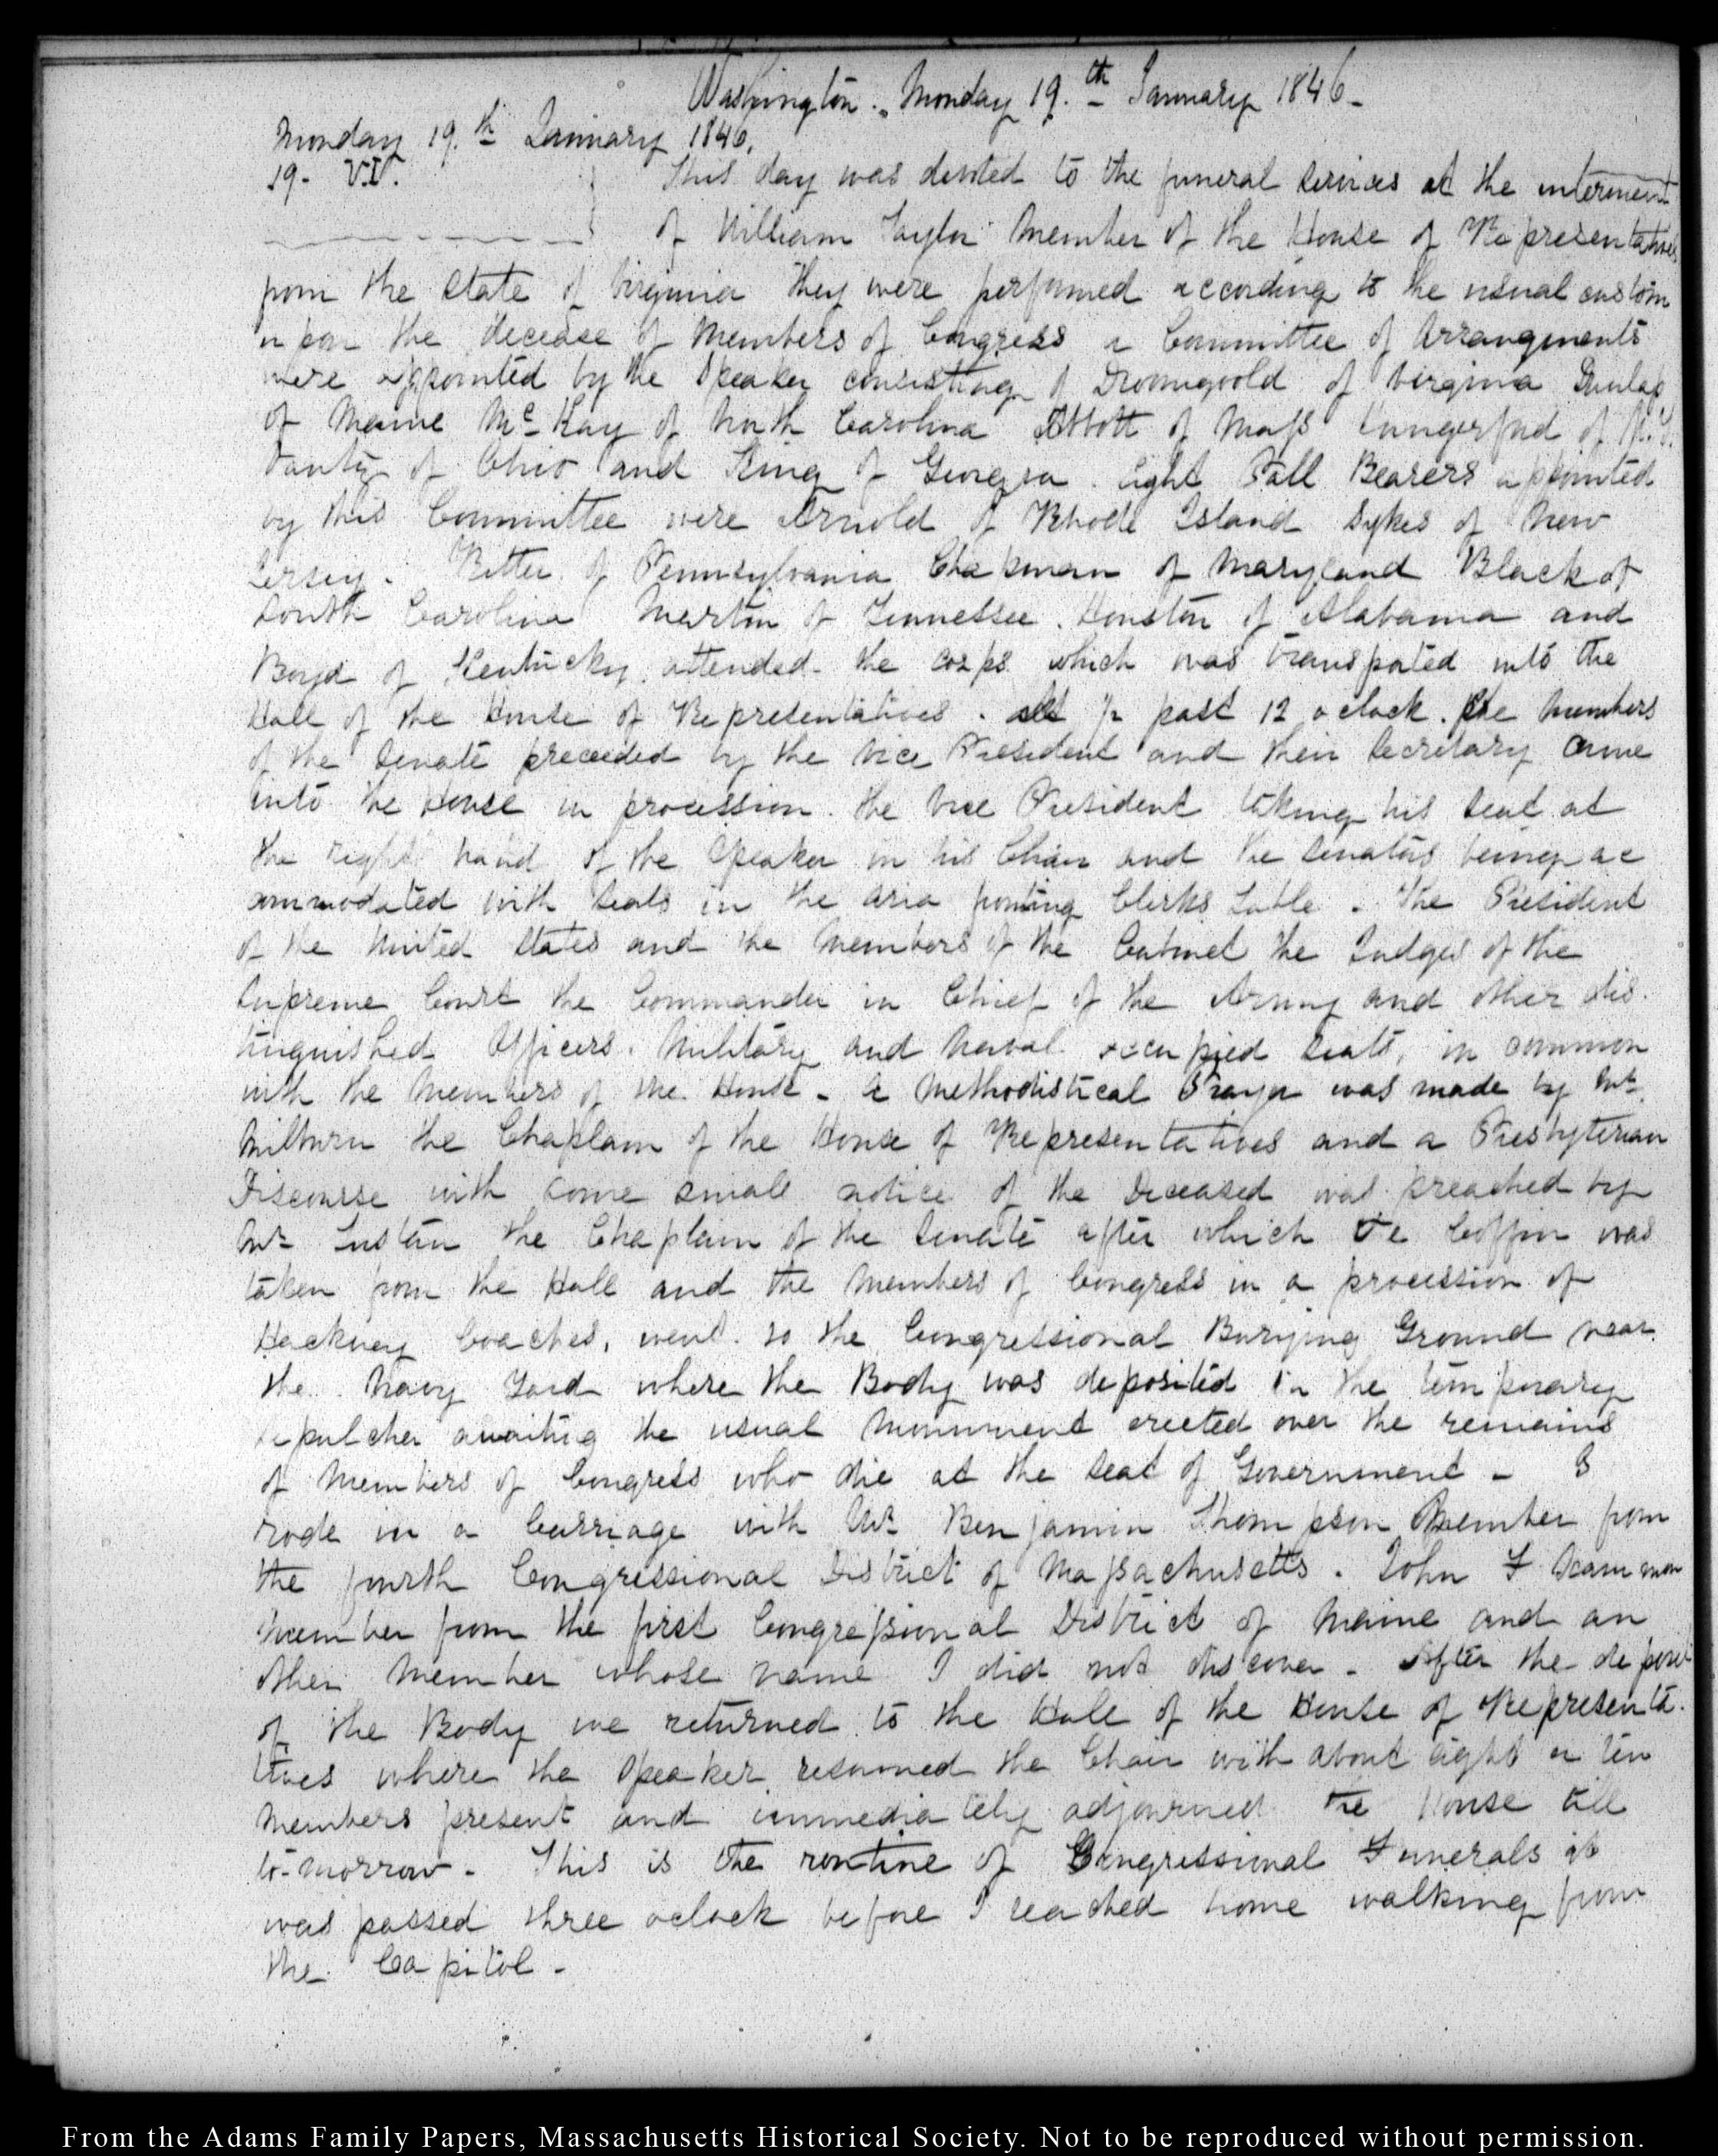 Washington. Monday 19.th January 1846-
Monday 19.th January 1846.
19. V.IV. This day was devoted to the funeral services at the interment
of William Taylor Member of the House of Representatives
from the State of Virginia they were performed according to the usual custom
upon the decease of Members of Congress a Committee of Arrangments
were appointed by the Speaker consisting of Dromgoold of Virginia Dunlap
of Maine Mc Kay of North Carolina Abbott of Mass Hungerford of N.Y.
Vantz of Ohio and King of Georgia. eight Pall Bearers appointed
by this Committee were Arnold of Rhode Island Sykes of New
Jersey. Ritter of Pennsylvania Chapman of Maryland Black of
South Carolina Martin of Tennessee. Houston of Alabama and
Boyd of Kentucky. attended the corps which was transported into the
Hall of the House of Representatives. At ½ past 12 oclock. the Members
of the Senate preceeded by the Vice President and their Secretary came
into the House in procession. the Vice President taking his seat at
the right hand of the Speaker in his Chair and the Senators being ac
commodated with seats in the area fronting Clerks Table. The President
of the United States and the Members of the Cabinet the Judges of the
Supreme Court the Commander in Chief of the Army and other dis.
tinguished Officers. Military and Naval. occupied seats, in common
with the Members of the House - A Methodistical Prayer was made by Mr.
Milburn the Chaplain of the House of Representatives and a Presbyterian
Discourse with some small notice of the Deceased was preached by
Mr Tustan the Chaplain of the Senate after which the Coffin was
taken from the Hall and the Members of Congress in a procession of
Hackney Coaches, went. to the Congressional Burying Ground near
the. Navy Yard where the Body was deposited in the temporary
sepulcher awaiting the usual Monument erected over the remains
of Members of Congress who die at the Seat of Government - I
rode in a Carriage with Mr Benjamin Thompson Member from
the fourth Congressional District of Massachusetts. John F Scammon
Member from the first Congressional District of Maine and an
other Member whose name I did not discover - After the deposit
of the Body we returned to the Hall of the House of Representa.
tives where the Speaker resumed the Chair with about eight or ten
Members present and immediately adjourned the House till
to-morrow - This is the routine of Congressional Funerals it
was passed three oclock before I reached home walking from
the Capitol -
From the Adams Family Papers, Massachusetts Historical Society. Not to be reproduced without permission.